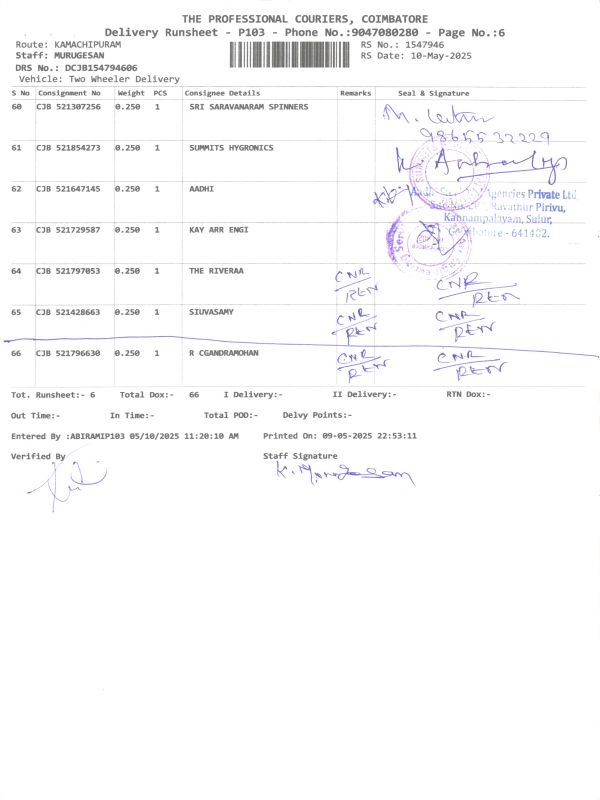 THE PROFESSIONAL COURIERS, COIMBATORE
Delivery Runsheet - P103 - Phone No.:9047080280 - Page No.:6
Route: KAMACHIPURAM RS No.: 1547946
Staff: MURUGESAN RS Date: 10-May-2025
DRS No.: DCJB154794606
Vehicle: Two Wheeler Delivery
S No Consignment No Weight PCS Consignee Details Remarks Seal & Signature
60 CJB 521307256 0.250 1 SRI SARAVANARAM SPINNERS
9865532229
61 CJB 521854273 0.250 1 SUMMITS HYGRONICS
62 CJB 521647145 0.250 1 AADHI
Agencies Private Ltd
Ravathur Pirivu,
Kannampalayam, Sulur,
- 641402.
63 CJB 521729587 0.250 1 KAY ARR ENGI
64 CJB 521797053 0.250 1 THE RIVERAA CNR CNR
REN REN
65 CJB 521428663 0.250 1 SIUVASAMY CNR CNR
REN REN
66 CJB 521796630 0.250 1 R CGANDRAMOHAN CNR CNR
REN REN
Tot. Runsheet:- 6 Total Dox:- 66 I Delivery:- II Delivery:- RTN Dox:-
Out Time:- In Time:- Total POD:- Delvy Points:-
Entered By :ABIRAMIP103 05/10/2025 11:20:10 AM Printed On: 09-05-2025 22:53:11
Verified By Staff Signature
K. Murugesan